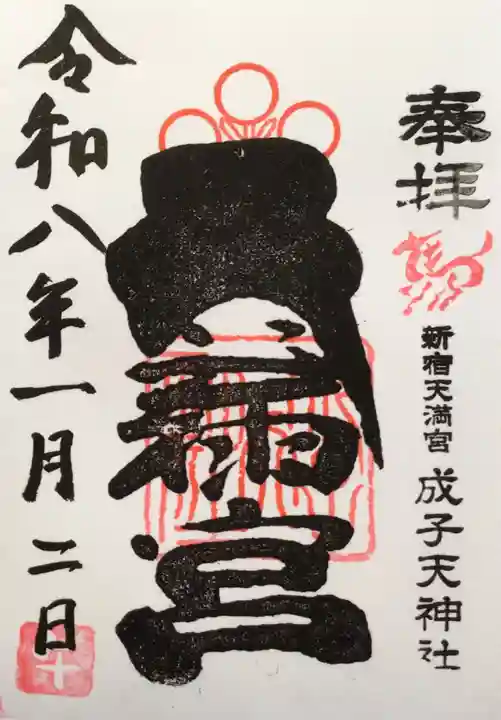 奉拝
新宿天満宮 成子天神社
天満宮
令和八年一月二日